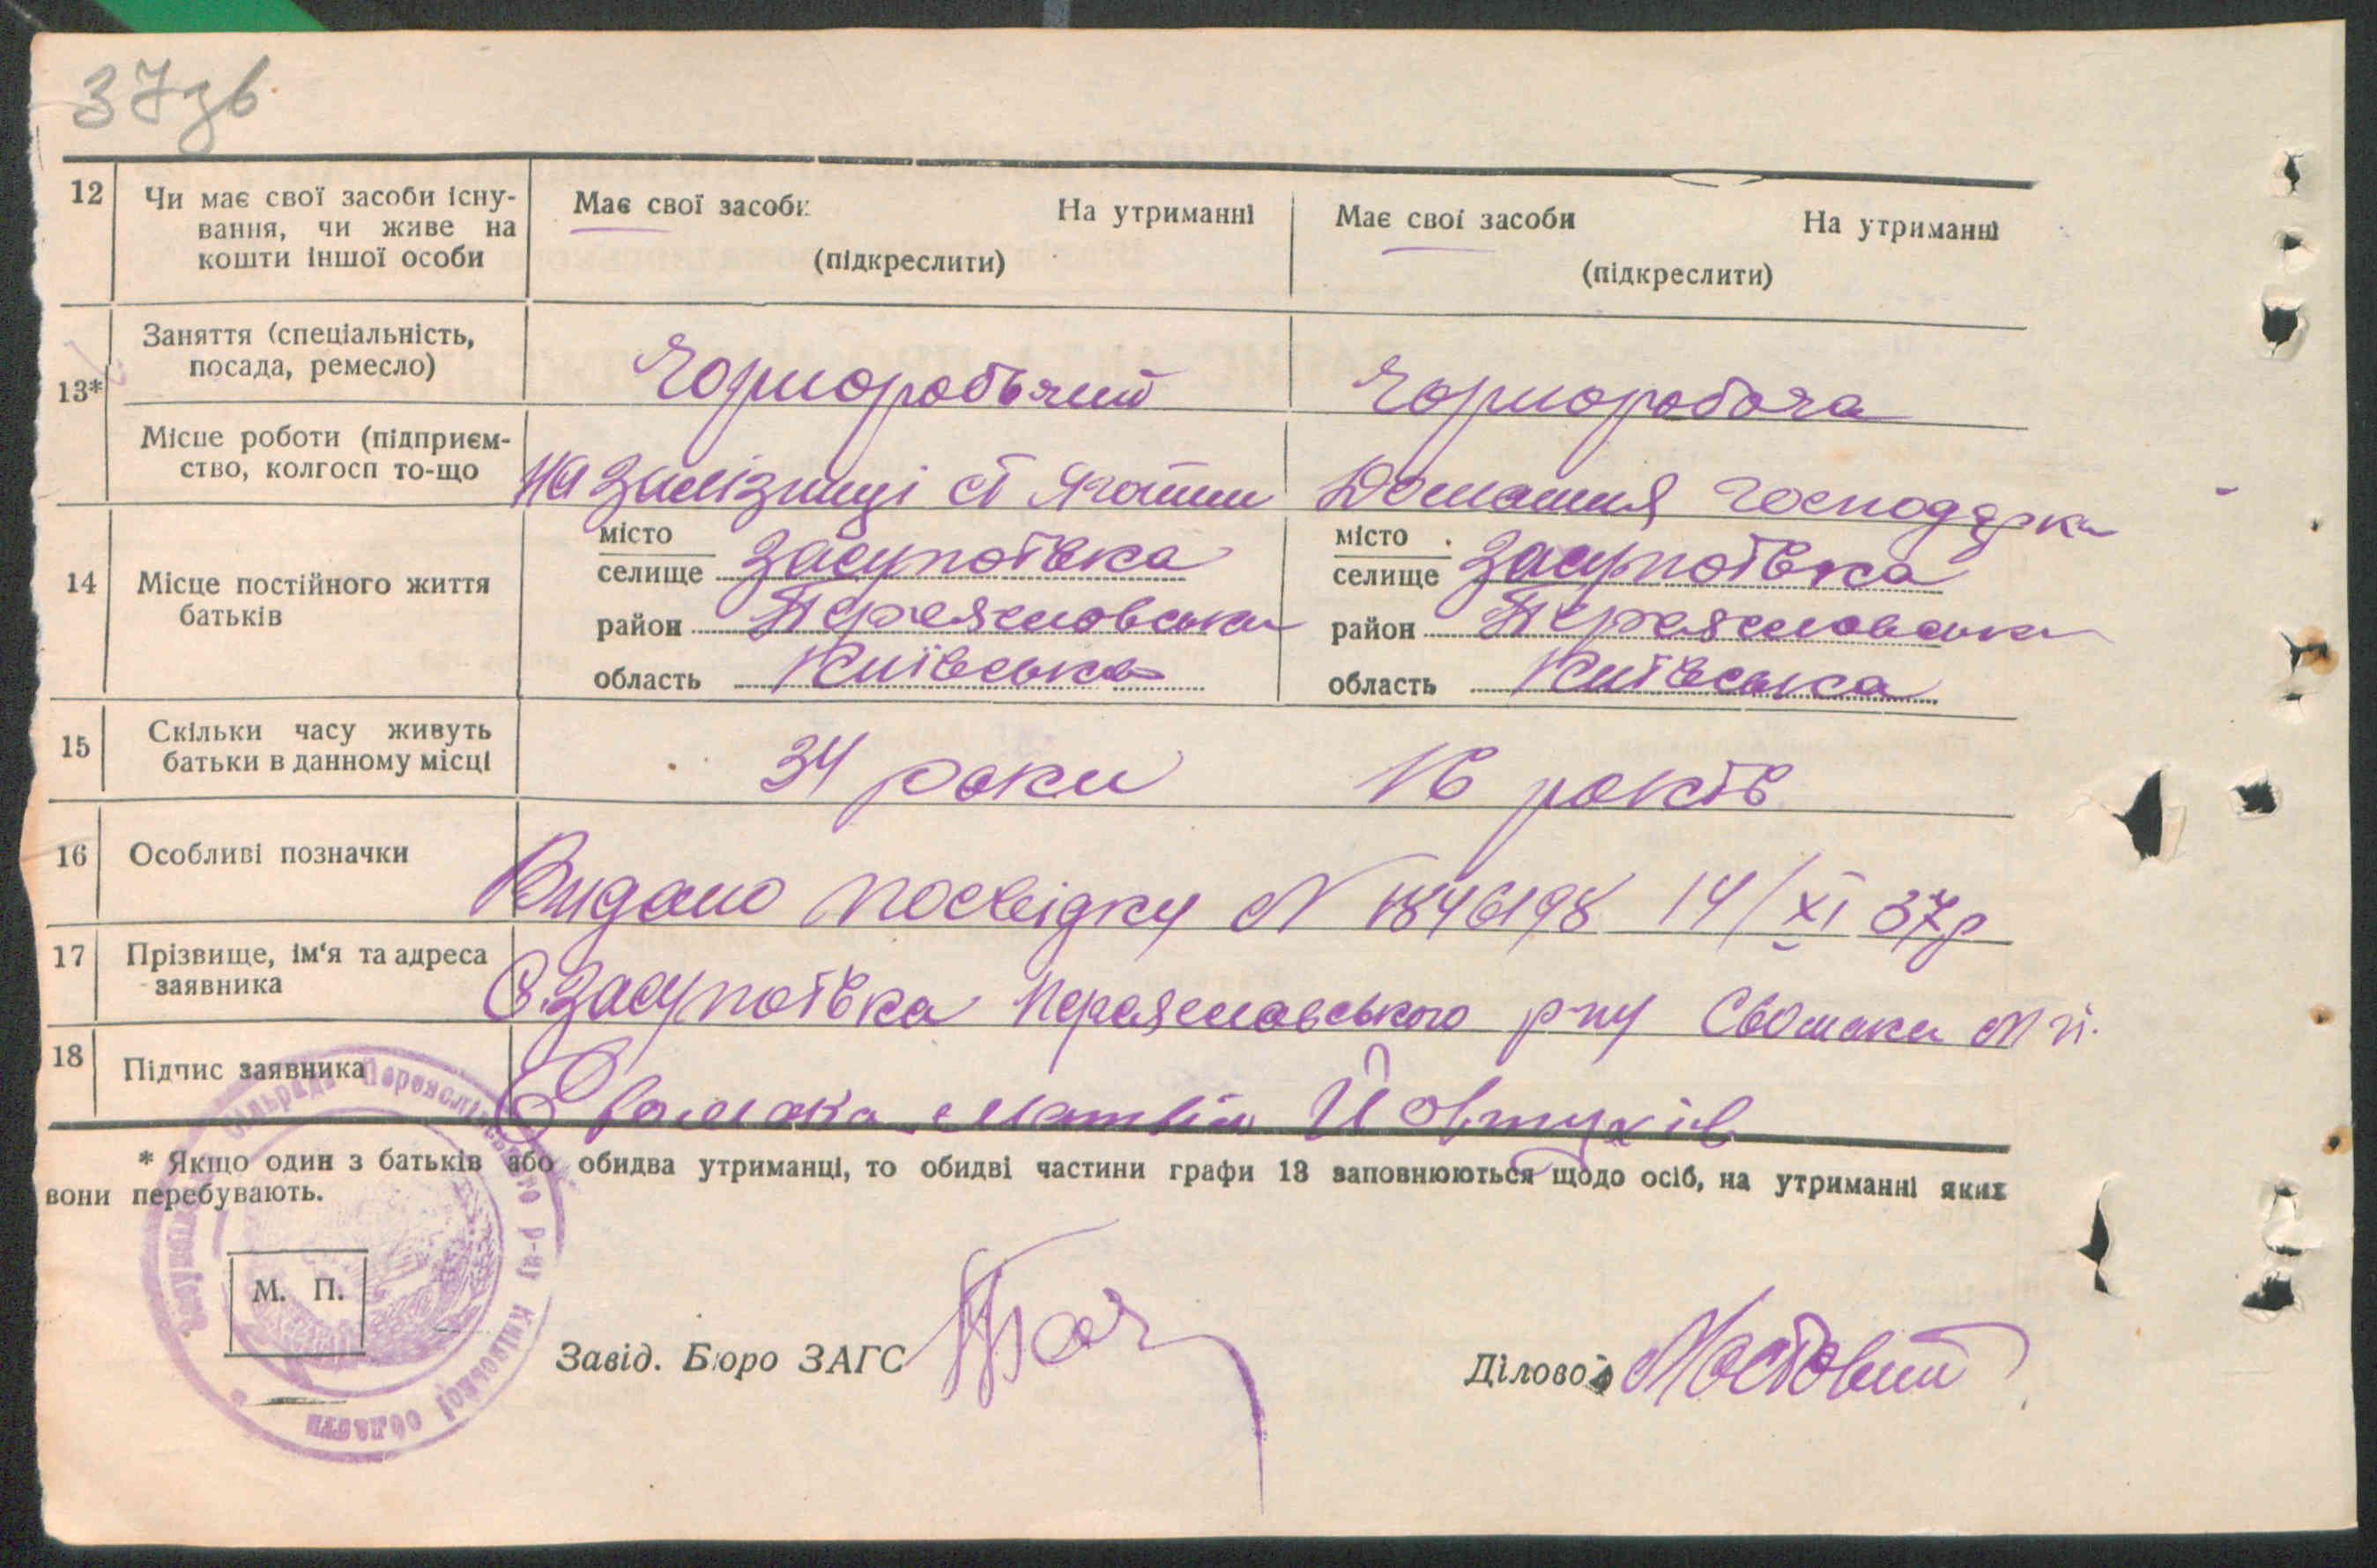 37зв
12 Чи має свої засоби існу- Має свої засоби На утриманні Має свої засоби На утриманні
вання, чи живе на
кошти іншої особи (підкреслити) (підкреслити)
Заняття (спеціальність,
посада, ремесло) Чорноробочий Чорноробоча
13*
Місце роботи (підприєм-
ство, колгосп то-що На Залізниці ст Яготин Домашня господарка
місто місто
селище Засупоївка селище Засупоївка
14 Місце постійного життя
батьків район Переяславськи район Переяславськи
область Київська область Київська
15 Скільки часу живуть
батьки в данному місці 34 роки 16 років
16 Особливі позначки
Видано посвідку N 1846198 14/XI 37р
17 Прізвище, ім'я та адреса
заявника С. Засупоївка Переяславського р-ну Свомака М Й.
18 Підпис заявника
Свомака Матвій Йовтухів
* Якщо один з батьків або обидва утриманці, то обидві частини графи 13 заповнюються щодо осіб, на утриманні яких
вони перебувають.
М. П.
Завід. Бюро ЗАГС
Діловод Мостовий
сільрада Переяслівського р-ну Київської области